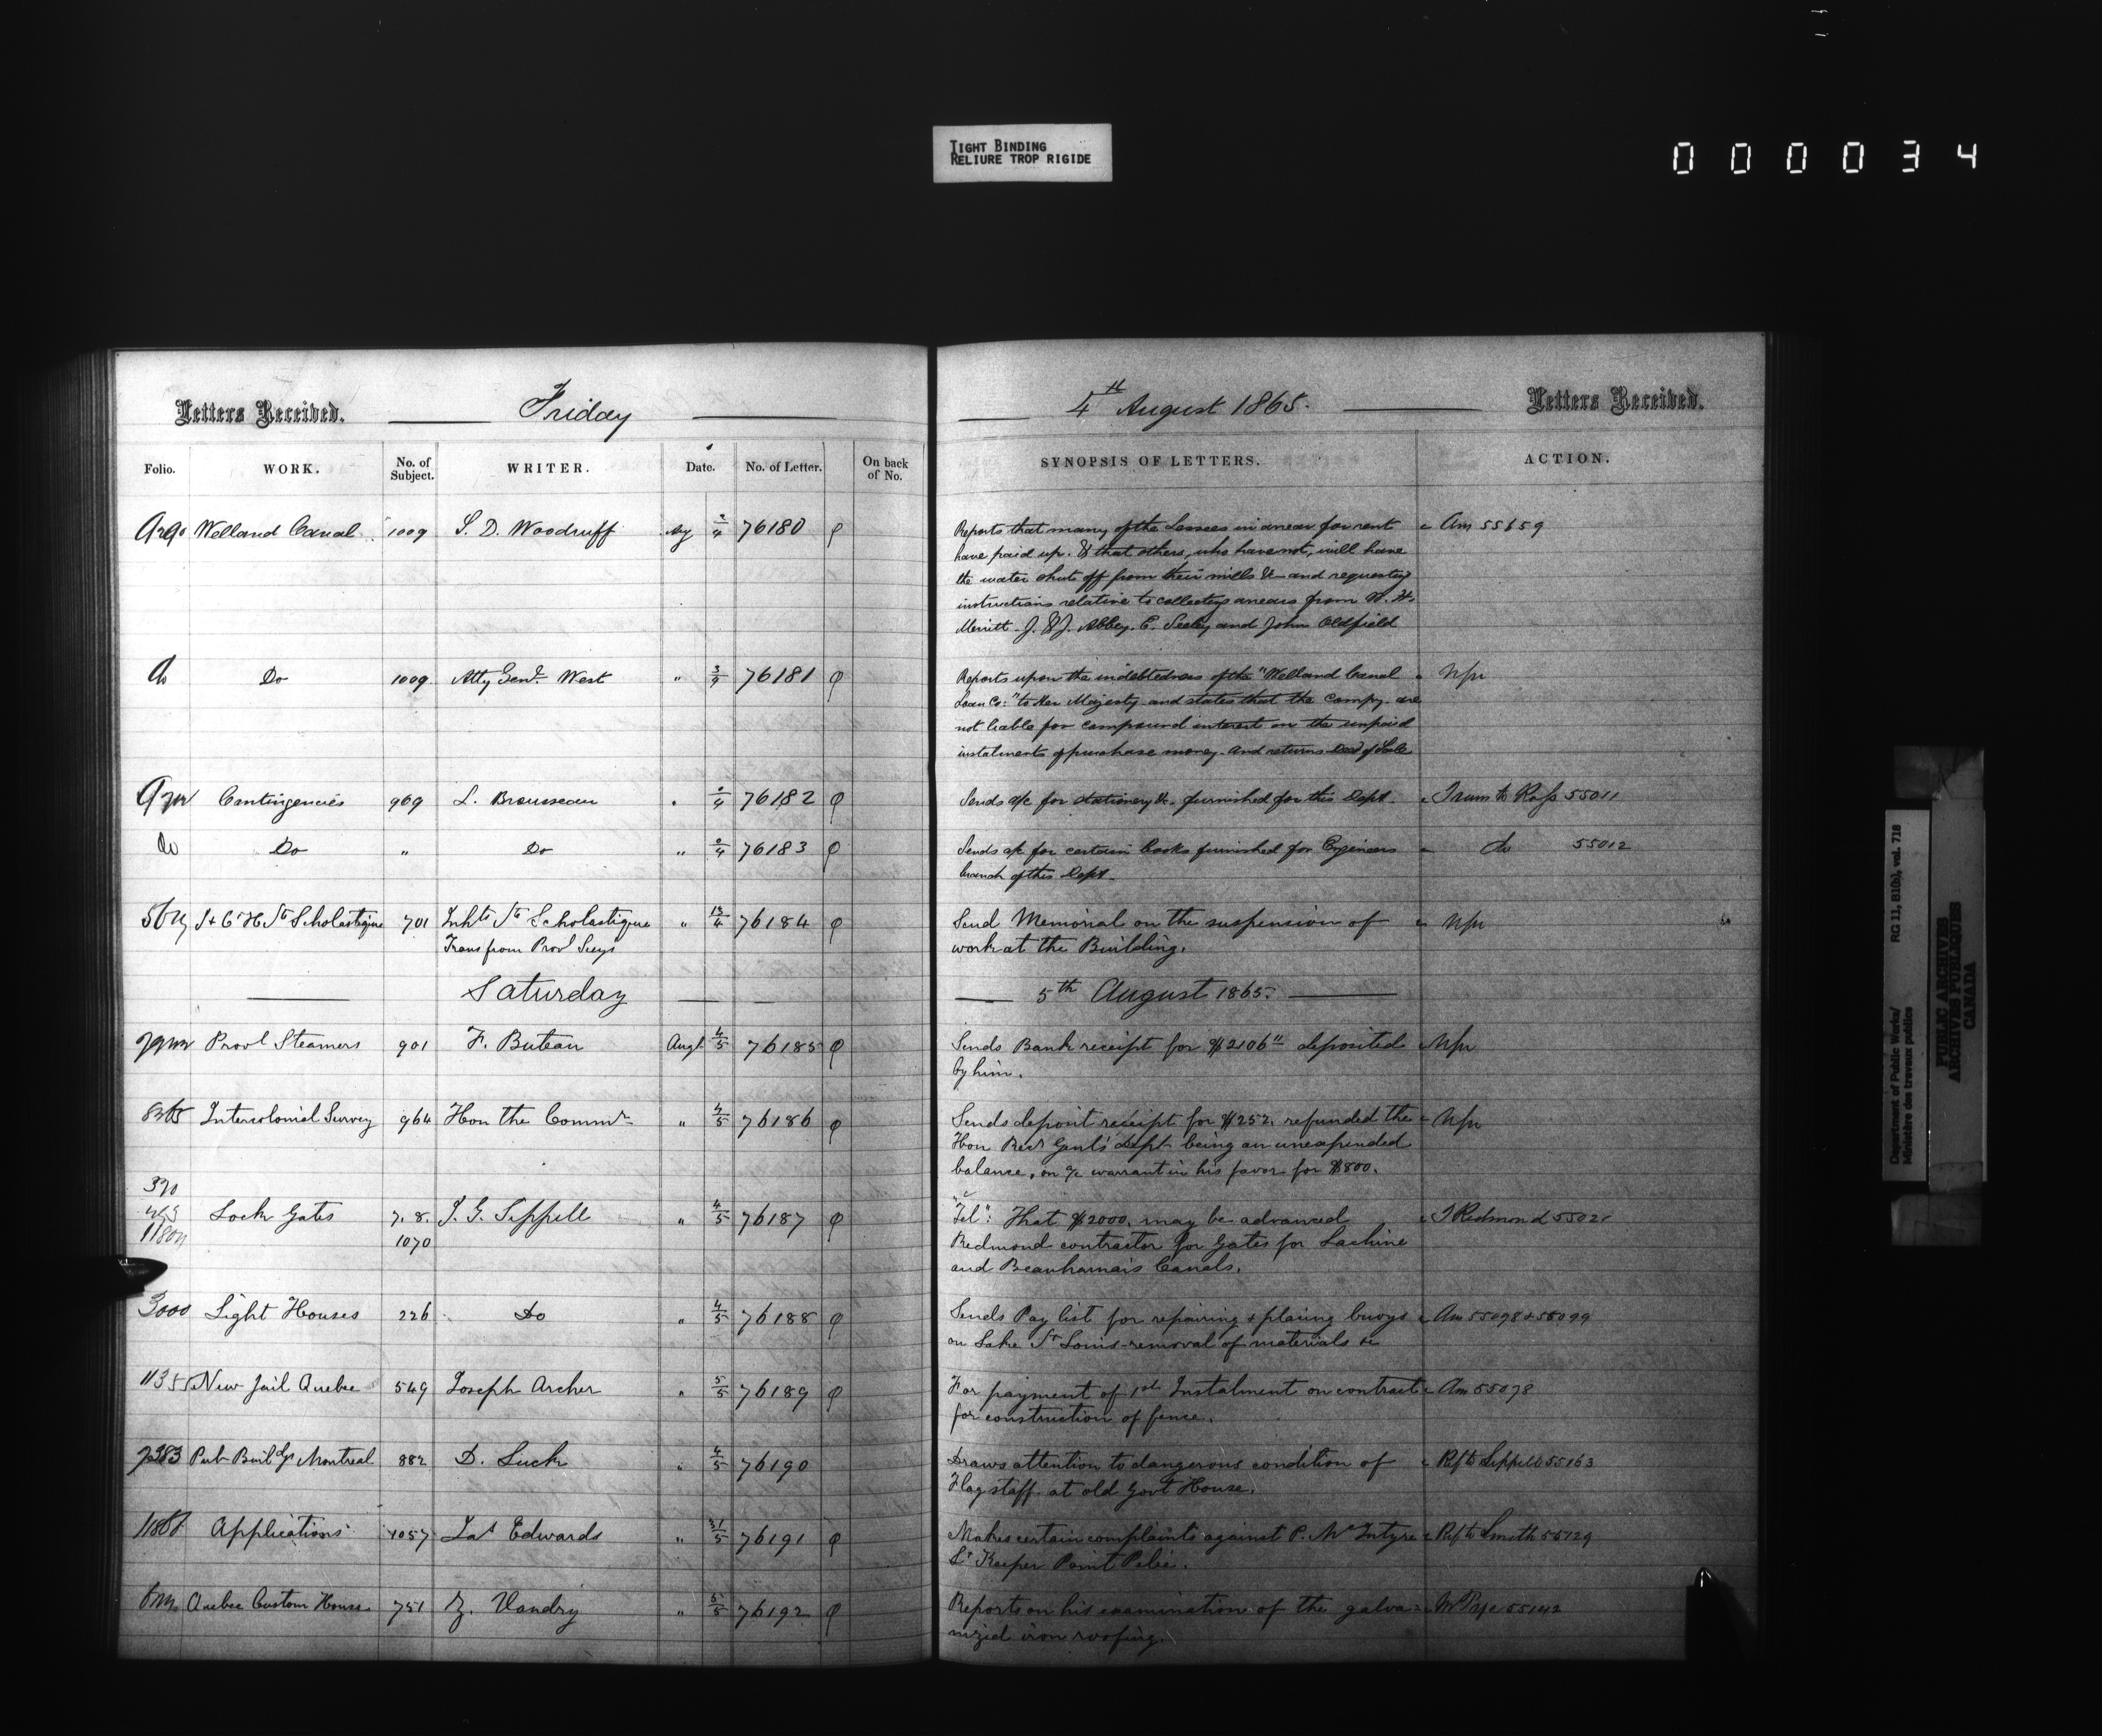 TIGHT BINDING
RELIURE TROP RIGIDE
000034
Letters Received. Friday 4th August 1865. Letters Received.
Folio. WORK. No. of Subject. WRITER. Date. No. of Letter. On back of No. SYNOPSIS OF LETTERS. ACTION.
Welland Canal 1009 S. D. Woodruff Aug 2/4 76180 Reports that many of the Lessees in arrear for rent Am 55659
have paid up. & that others, who have not, will have
the water shut off from their mills &c and requesting
instructions relative to collecting arrears from W. H.
Merritt. J. & J. Abbey. E. Seeley and John Oldfield
do Do 1009 Atty Genl. West " 3/4 76181 Reports upon the indebtedness of the "Welland Canal
Loan Co:" to Her Majesty and states that the Compy. are
not liable for compound interest on the unpaid
instalments of purchase money. And returns Deed of Sale
Contingencies 969 L. Brousseau " 76182 Sends a/c for stationery &c. furnished for this Dept. Trans to Ross 55011
do Do " Do " 76183 Sends a/c for certain books furnished for Engineers do 55012
branch of this Dept.
J & C H Ste Scholastique 701 Inhts Ste Scholastique " 76184 Send Memorial on the suspension of
Trans from Provl Secy work at the Building.
Saturday 5th August 1865.
Provl Steamers 901 F. Buteau Augt 4/5 76185 Sends Bank receipt for $2106 " deposited
by him.
Intercolonial Survey 964 Hon the Commr " 4/5 76186 Sends deposit receipt for $252. refunded the
Hon Recr Genl's Dept being an unexpended
balance, on a/c warrant in his favor for $800.
390
Lock Gates 7. 8. J. G. Sippell " 4/5 76187 "Tel": That $2000. may be advanced J Redmond 5502
1070 Redmond contractor for Gates for Lachine
and Beauharnais Canals.
3000 Light Houses 226 Do " 4/5 76188 Sends Pay list for repairing & placing buoys Am 55098 & 55099
on Lake St Louis - removal of materials &c
1135 New Jail Quebec 549 Joseph Archer " 5/5 76189 For payment of 1st Instalment on contract Am 55078
for construction of fence.
Pub Buildgs Montreal 882 D. Luck " 4/5 76190 Draws attention to dangerous condition of Ref to Sippell 55163
Flag staff at old Govt House.
Applications 1057 Jas Edwards " 31/5 76191 Makes certain complaints against P. McIntyre Ref to Smith 55129
Lt Keeper Point Pelée.
Quebec Custom House 751 Z. Vandry " 5/5 76192 Reports on his examination of the galva- W Pye 55142
nized iron roofing.
Department of Public Works/
Ministère des travaux publics
RG 11, B1(b), vol. 718
PUBLIC ARCHIVES
ARCHIVES PUBLIQUES
CANADA